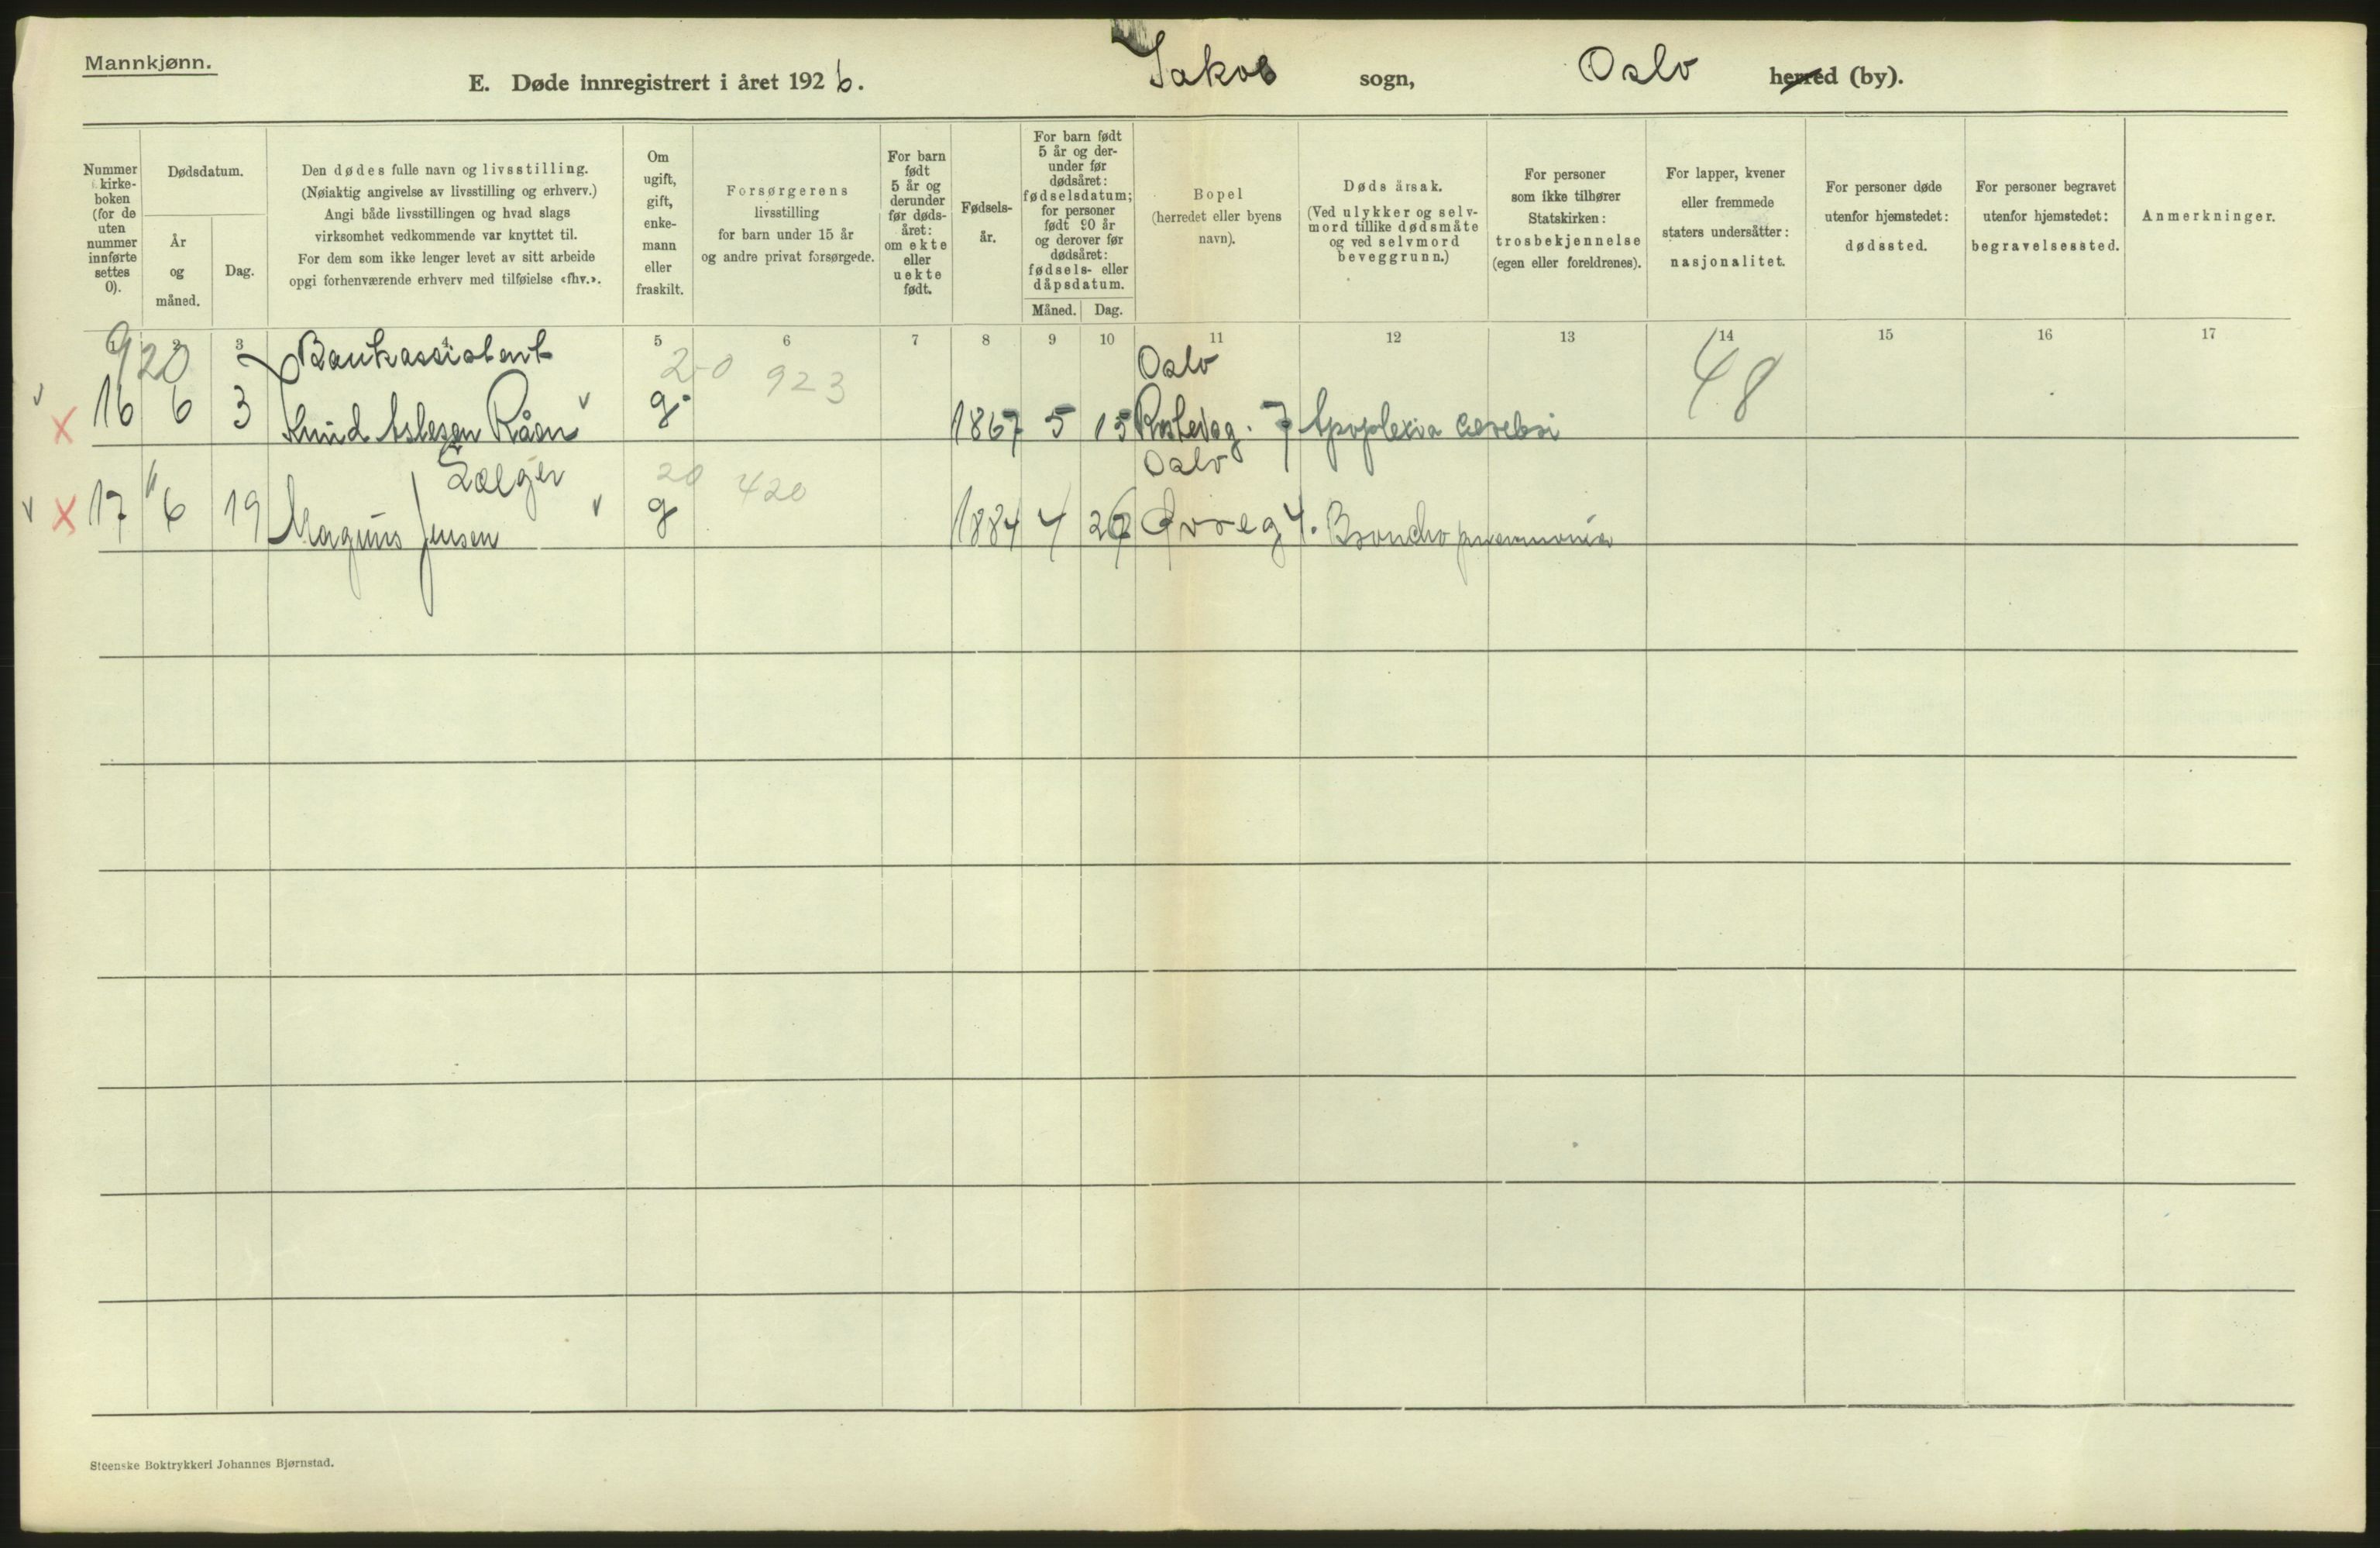 Mannkjønn.
E. Døde innregistrert i året 1926. Jakob sogn, Oslo herred (by).
Nummer i kirke-boken (for de uten nummer innførte settes 0).
Dødsdatum.
År og måned.
Dag.
Den dødes fulle navn og livsstilling.
(Nøiaktig angivelse av livsstilling og erhverv.)
Angi både livsstillingen og hvad slags
virksomhet vedkommende var knyttet til.
For dem som ikke lenger levet av sitt arbeide
opgi forhenværende erhverv med tilføielse «fhv.».
Om ugift, gift, enke-mann eller fraskilt.
Forsørgerens
livsstilling
for barn under 15 år
og andre privat forsørgede.
For barn født 5 år og derunder før døds-året: om ekte eller uekte født.
Fødsels-år.
For barn født 5 år og der-under før dødsåret: fødselsdatum; for personer født 90 år og derover før dødsåret: fødsels- eller dåpsdatum.
Måned. Dag.
Bopel
(herredet eller byens
navn).
Dødsårsak.
(Ved ulykker og selv-
mord tillike dødsmåte
og ved selvmord
beveggrunn.)
For personer
som ikke tilhører
Statskirken:
trosbekjennelse
(egen eller foreldrenes).
For lapper, kvener
eller fremmede
staters undersåtter:
nasjonalitet.
For personer døde
utenfor hjemstedet:
dødssted.
For personer begravet
utenfor hjemstedet:
begravelsessted.
Anmerkninger.
1 2 3 4 5 6 7 8 9 10 11 12 13 14 15 16 17
920 Bankassistent 20 923 Oslo 48
16 6 3 Knud Aslesen Råen g. 1867 5 15 7 Apoplexia cerebri
Selger 20 420 Oslo
17 6 19 Magnus Jensen g 1884 4 4. Broncho pneumonia
Steenske Boktrykkeri Johannes Bjørnstad.